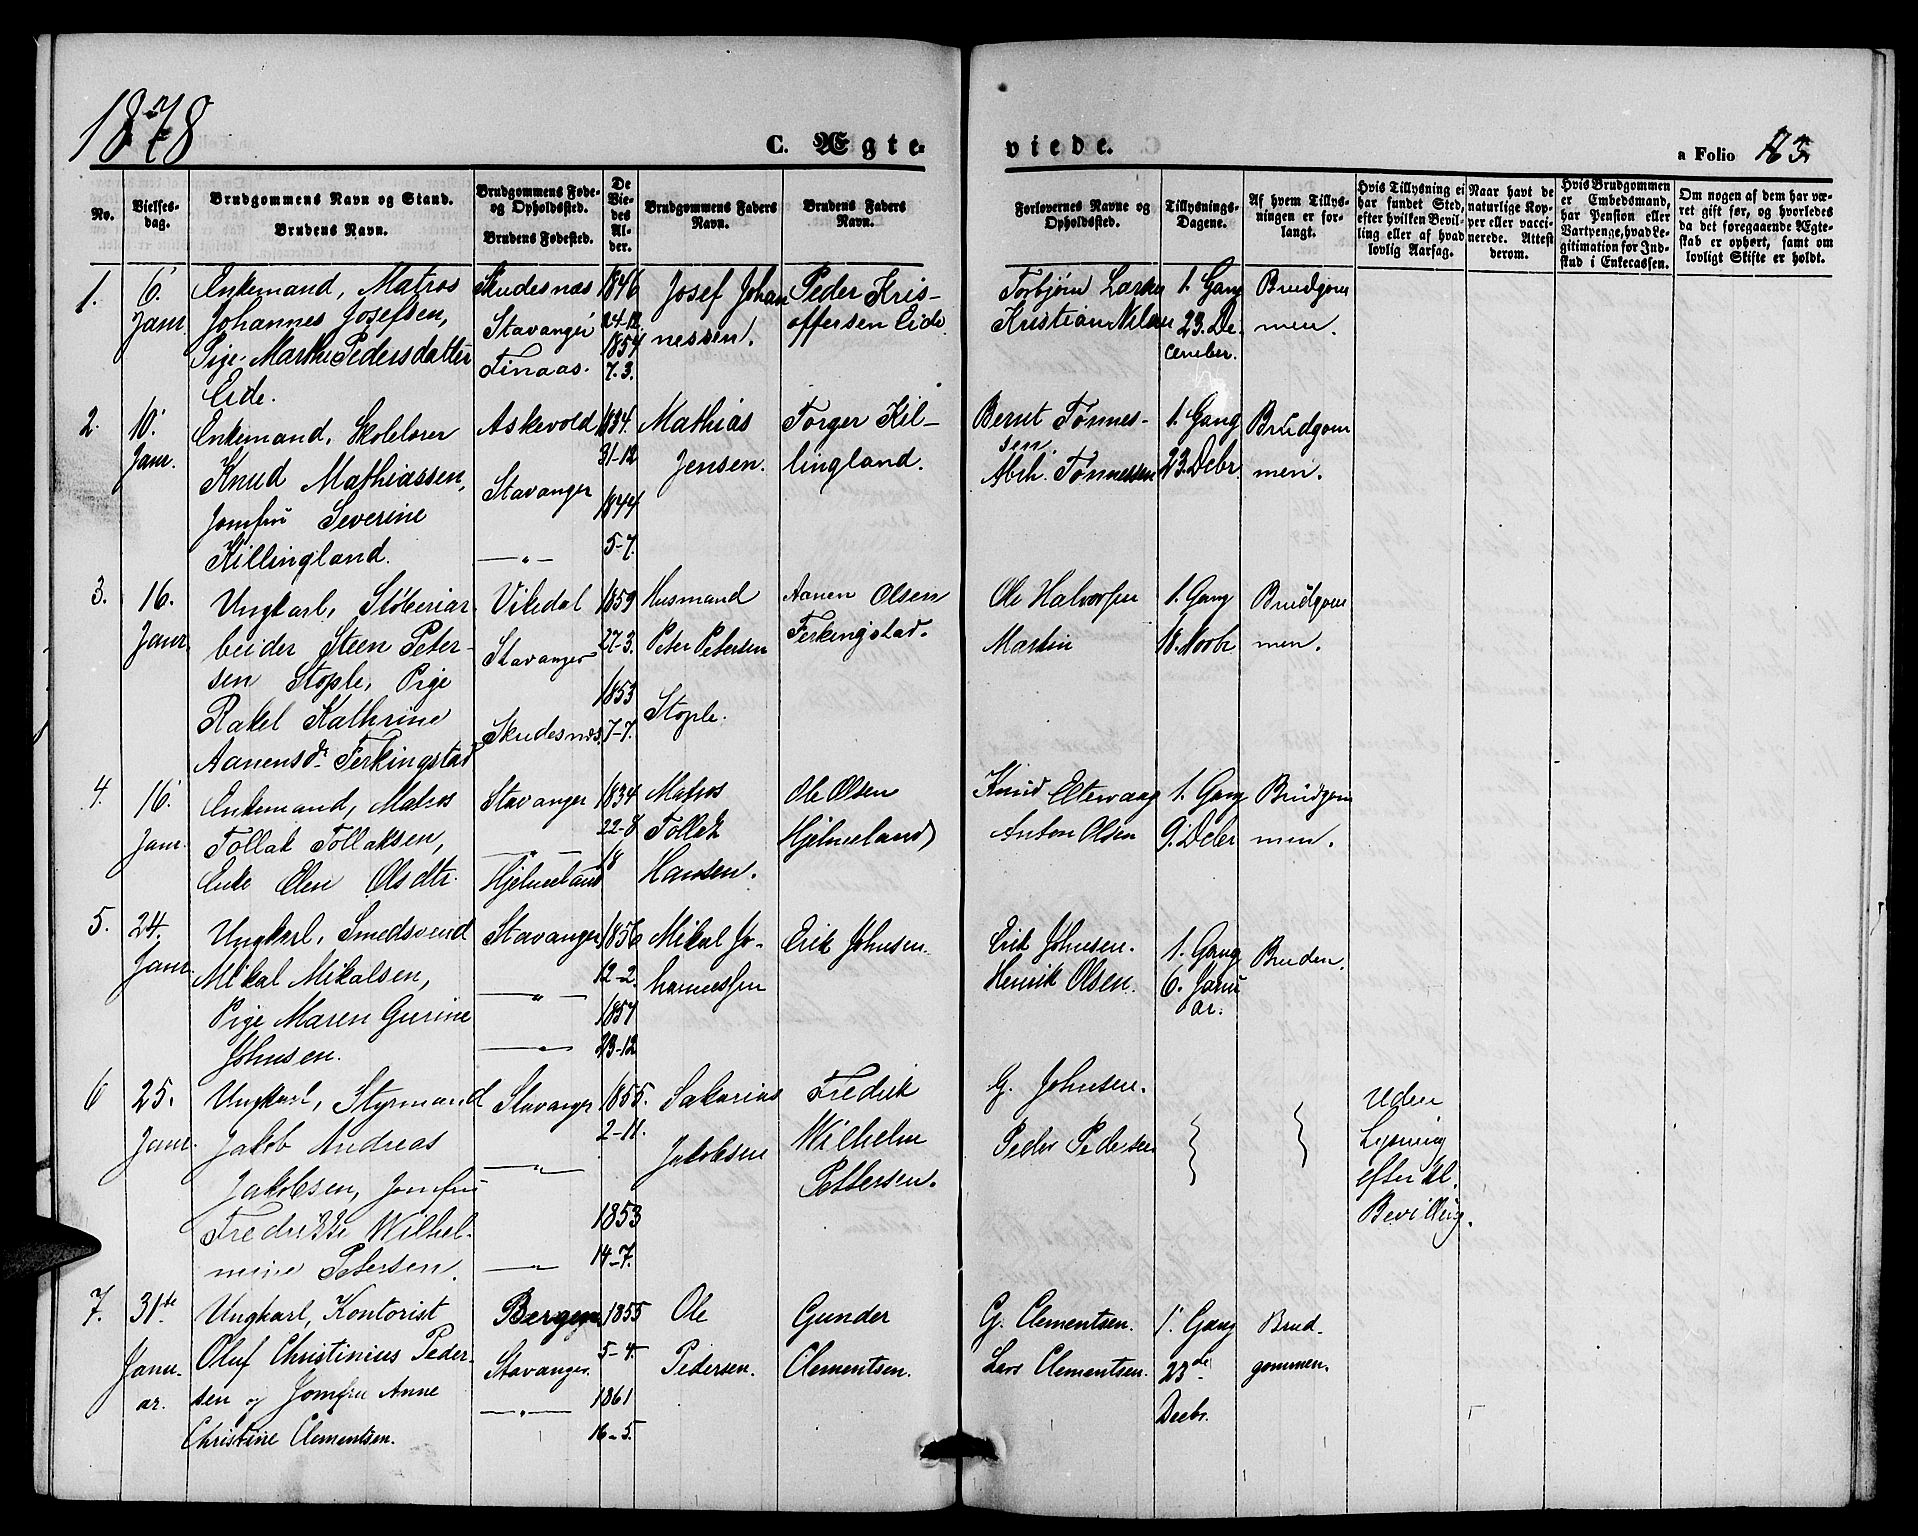 1878
C. Ægte-
viede.
a Folio 183.
No.
Vielses-
dag.
Brudgommens Navn og Stand.
Brudens Navn.
Brudgommens Føde-
og Opholdssted.
Brudens Fødested.
De
Vie-
des
Al-
der.
Brudgommens Faders
Navn.
Brudens Faders
Navn.
Forlovernes Navne og
Opholdssted.
Tillysnings-
Dagene.
Af hvem Tillys-
ningen er for-
langt.
Hvis Tillysning ei
har fundet Sted,
efter hvilken Bevil-
ling eller af hvad
lovlig Aarsag.
Naar havt de
naturlige Kop-
per eller vacci-
nerede. Attest
derom.
Hvis Brudgommen
er Embedsmand,
har Pension eller
Vartpenge, hvad Le-
gitimation for Ind-
skud i Enkecassen.
Om nogen af dem har væ-
ret gift før, og hvorledes
da det foregaaende Ægte-
skab er ophørt, samt om
lovligt Skifte er holdt.
1.
6.
Janr.
Enkemand, Matros
Johannes Josefsen,
Pige Marthe Pedersdatter
Eide.
Skudesnæs
Stavanger
Finaas.
1846
24-12
1854
7.3.
Josef Johan
nessen.
Peder Kris-
offersen Eide.
Torbjørn
Kristian
1. Gang
23. De-
cember.
Brudgom
men.
2.
10.
Janr.
Enkemand, Skolelærer
Knud Mathiassen,
Jomfru Severine
Killingland.
Askevold
Stavanger
—„—
1834.
31-12
1844
5-7.
Mathias
Jensen.
Torger Kil-
lingland.
Bernt Tønnes-
sen.
Abrh. Tønnessen
1. Gang
23. Debr.
Brudgom
men.
3.
16.
Janr.
Ungkarl, Støberiar-
beider Steen Peter-
sen Stople, Pige
Rakel Kathrine
Aanensdr. Ferkingstad
Vikedal
Stavanger
Skudesnæs.
1859
27-3.
1853
7-7.
Husmand
Peter Petersen
Stople.
Aanen Olsen
Ferkingstad.
Ole Halvorsen
Martin
1. Gang
18. Novbr
Brudgom
men.
4.
16.
Janr.
Enkemand, Matros
Tollak Tollaksen,
Enke Elen Olsdtr.
Stavanger
—„—
Hjelmeland
1834
22-8
18
Matros
Tollak
Hansen.
Ole Olsen
Hjelmeland
Knud Eltervaag
Anton Olsen
1. Gang
9. Debr
Brudgom
men.
5.
24.
Janr.
Ungkarl, Smedsvend
Mikal Mikalsen,
Pige Maren Gurine
Johnsen.
Stavanger
—„—
—„—
1856
12-2.
1857
23-12
Mikal Jo-
hannessen
Erik Johnsen.
Erik Johnsen.
Henrik Olsen.
1. Gang
6. Janu
ar.
Bruden.
6
25.
Janr.
Ungkarl, Styrmand
Jakob Andreas
Jakobsen, Jomfru
Fredrikke Wilhel-
mine Petersen.
Stavanger
—„—
—„—
1855.
2-11.
1853
14-7.
Sakarias
Jakobsen
Fredrik
Wilhelm
Pettersen.
G. Johnsen.
Peder Pedersen
Uden
Lysning
efter kl.
Bevilling.
7.
31te
Janu-
ar.
Ungkarl, Kontorist
Oluf Christinius Peder-
sen og Jomfru Anne
Christine Clementsen.
Bergen
Stavanger.
—„—
1855
5-4.
1861
16-5.
Ole
Pedersen.
Gunder
Clementsen.
G. Clementsen.
Lars Clementsen.
1. Gang
23de
Decbr.
Brud-
gommen.